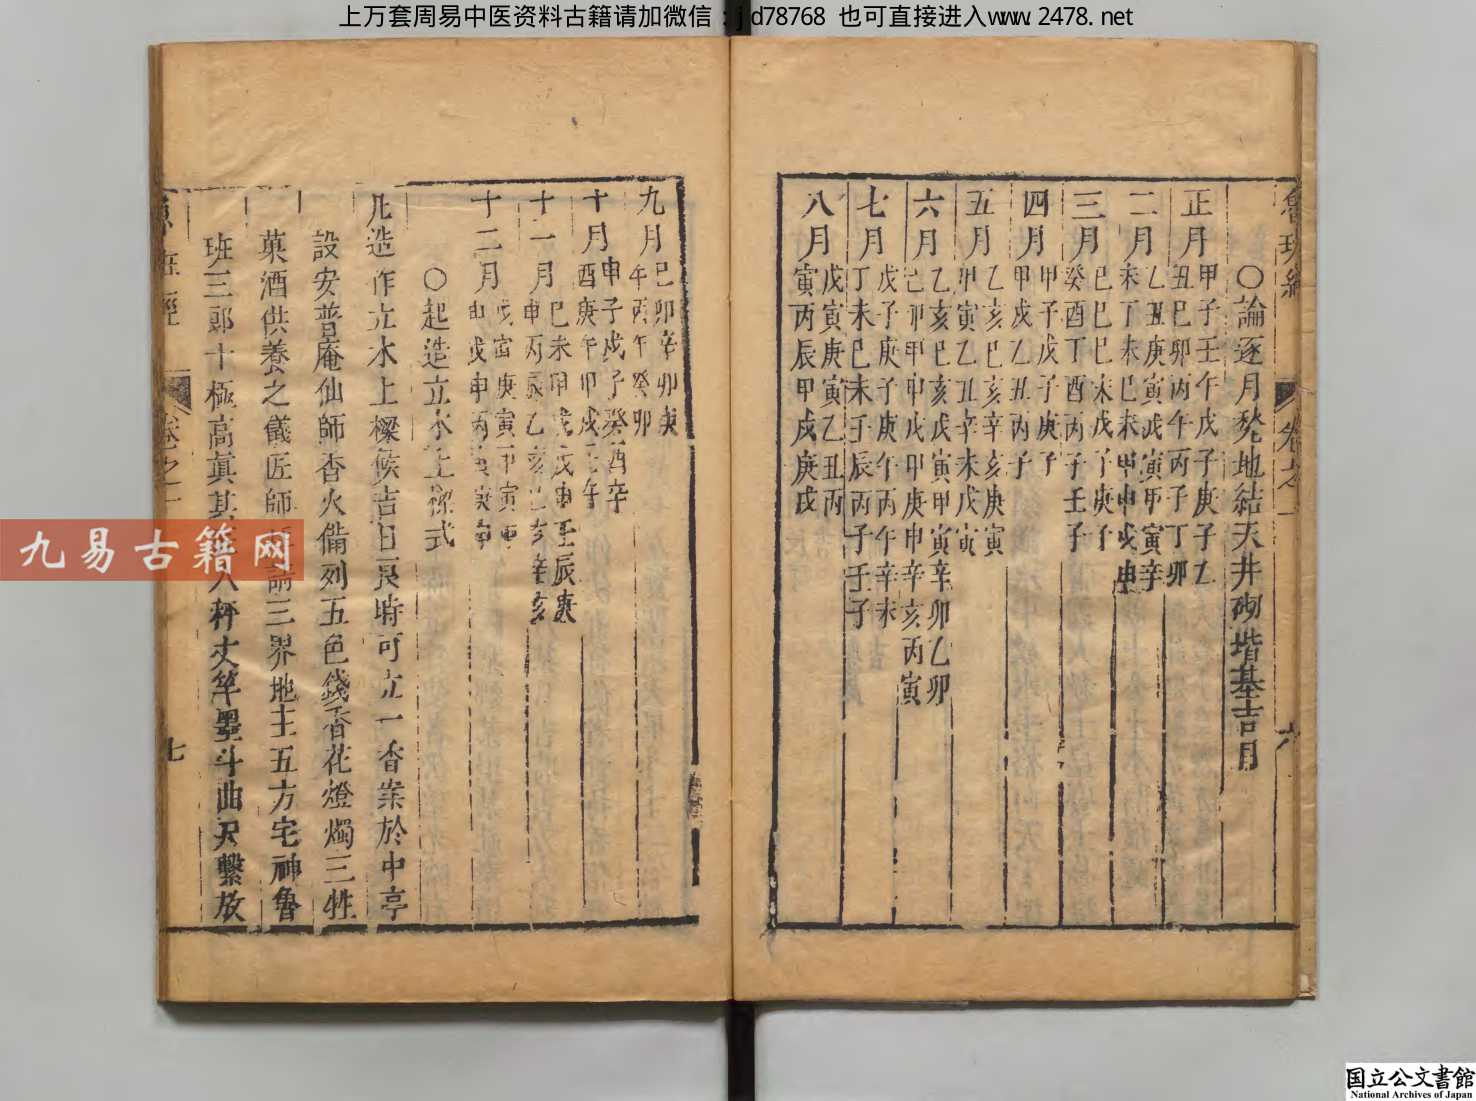 上万套周易中医资料古籍请加微信：jd78768 也可直接进入www.2478.net
魯班經 卷之一 六
○論逐月甃地結天井砌堦基吉日
正月 甲子壬午戊子庚子乙
丑巳卯丙午丙子丁卯
二月 乙丑庚寅戊寅甲寅辛
未丁未巳未甲申戊申
三月 巳巳巳未戊丁庚子
癸酉丁酉丙子壬子
四月 甲子戊子庚子
甲戌乙丑丙子
五月 乙亥巳亥辛亥庚寅
甲寅乙丑辛未戊寅
六月 乙亥巳亥戊寅甲寅辛卯乙卯
己卯甲申戊申庚申辛亥丙寅
七月 戊子庚子庚午丙午辛未
丁未巳未壬辰丙子壬子
八月 戊寅庚寅乙丑丙
寅丙辰甲戌庚戌
九月 巳卯辛卯庚
午丙午癸卯
十月 甲子戊子癸酉辛
酉庚午甲戌壬午
十一月 巳未甲戌戊申壬辰庚
申丙辰乙亥巳亥辛亥
十二月 戊寅庚寅甲寅
申戊申丙寅庚申
○起造立木上樑式
凡造作立木上樑候吉日良時可立一香案於中亭
設安普庵仙師香火備列五色錢香花燈燭三牲
菓酒供養之儀匠師拜請三界地主五方宅神魯
班三郎十極高眞其匠人秤丈竿墨斗曲尺繫放
魯班經 卷之一 七
九易古籍网
国立公文書館
National Archives of Japan